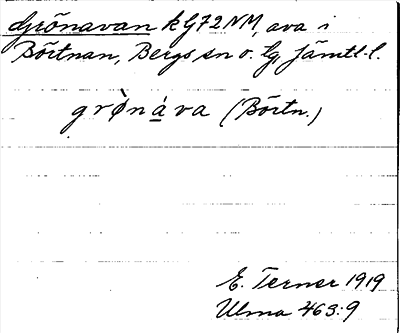 Grönavan kG72NM, ava i
Börtnan, Bergs sn o. lg, Jämtl. l.
grø̀nàva (Börtn.)
E. Terner 1919
Ulma 463:9